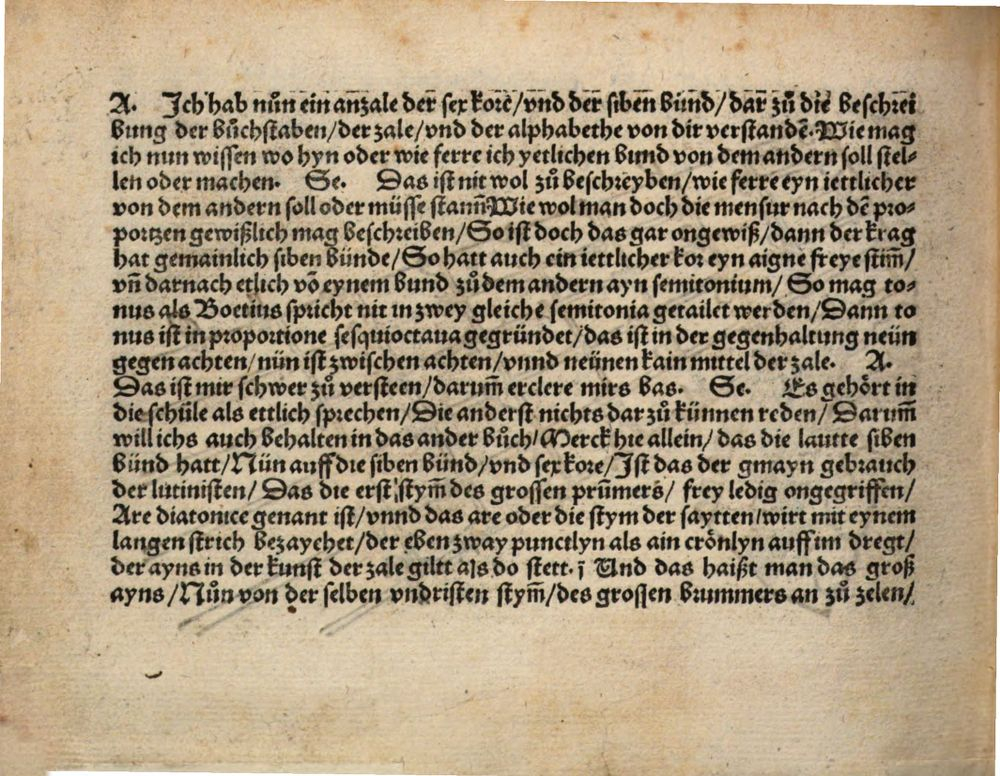 A. Jch hab nůn ein anzale der sex korē/vnd der siben bünd/dar zů die beschrei
bung der bůchstaben/der zale/vnd der alphabethe von dir verstandē. Wie mag
ich nun wissen wo hyn oder wie ferre ich yetlichen bund von dem andern soll stel-
len oder machen. Se. Das ist nit wol zů beschreyben/wie ferre eyn iettlicher
von dem andern soll oder müsse stann̄ Wie wol man doch die mensur nach dē pro-
portzen gewißlich mag beschreiben/So ist doch das gar ongewiß/dann der krag
hat gemainlich siben bünde/So hatt auch ein iettlicher kor eyn aigne freye stim̄/
vn̄ darnach etlich vō eynem bund zů dem andern ayn semitonium/So mag to-
nus als Boetius spricht nit in zwey gleiche semitonia getailet werden/Dann to
nus ist in proportione sesquioctaua gegründet/das ist in der gegenhaltung neün
gegen achten/nün ist zwischen achten/vnnd neünen kain mittel der zale. A.
Das ist mir schwer zů versteen/darum̄ erclere mirs bas. Se. Es gehört in
die schůle als ettlich sprechen/Die anderst nichts dar zů künnen reden/Darum̄
will ichs auch behalten in das ander bůch/Merck hie allein/das die lautte siben
bünd hatt/Nün auff die siben bünd/vnd sex kore/Jst das der gmayn gebrauch
der lutinisten/Das die erst stym̄ des grossen prům̄ers/frey ledig ongegriffen/
Are diatonice genant ist/vnnd das are oder die stym der saytten/wirt mit eynem
langen strich bezaychet/der eben zway punctlyn als ain crönlyn auff im dregt/
der ayns in der kunst der zale giltt als do stett. ï Und das haißt man das groß
ayns/Nůn von der selben vndristen stym̄/des grossen brummers an zů zelen/